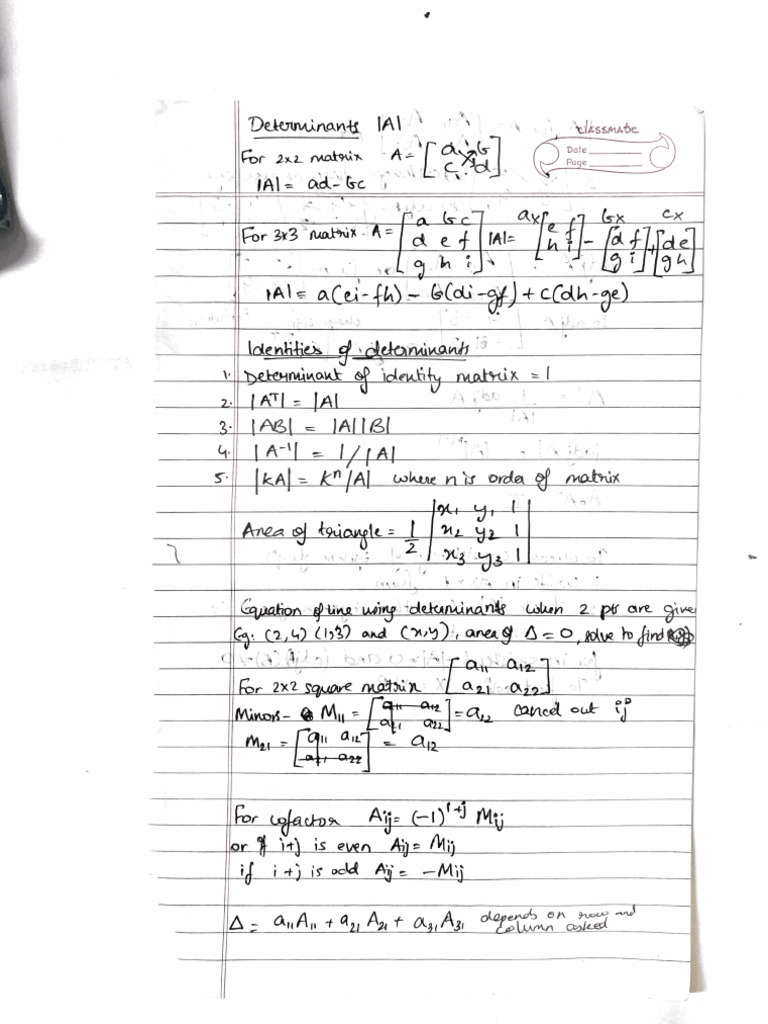 Determinants |A|
classmate
Date
Page
For 2x2 matrix A = [a b
c d]
|A| = ad - bc
For 3x3 matrix - A = [a b c
d e f
g h i] |A| = ax [e f
h i] - bx [d f
g i] + cx [d e
g h]
|A| = a(ei-fh) - b(di-gf) + c(dh-ge)
Identities of determinants
1. Determinant of identity matrix = 1
2. |Aᵀ| = |A|
3. |AB| = |A||B|
4. |A⁻¹| = 1/|A|
5. |kA| = kⁿ|A| where n is order of matrix
Area of triangle = 1/2 |x₁ y₁ 1
x₂ y₂ 1
x₃ y₃ 1|
Equation of line using determinants when 2 pts are give
Eg: (2,4) (1,3) and (x,y), area of Δ = 0, solve to find
For 2x2 square matrix [a₁₁ a₁₂
a₂₁ a₂₂]
Minors - M₁₁ = [a₁₁ a₁₂
a₂₁ a₂₂] = a₁₂ cancel out ij
M₂₁ = [a₁₁ a₁₂
a₂₁ a₂₂] = a₁₂
For cofactor Aij = (-1)ⁱ⁺ʲ Mij
or if i+j is even Aij = Mij
if i+j is odd Aij = -Mij
Δ = a₁₁A₁₁ + a₂₁A₂₁ + a₃₁A₃₁ depends on row and
column asked